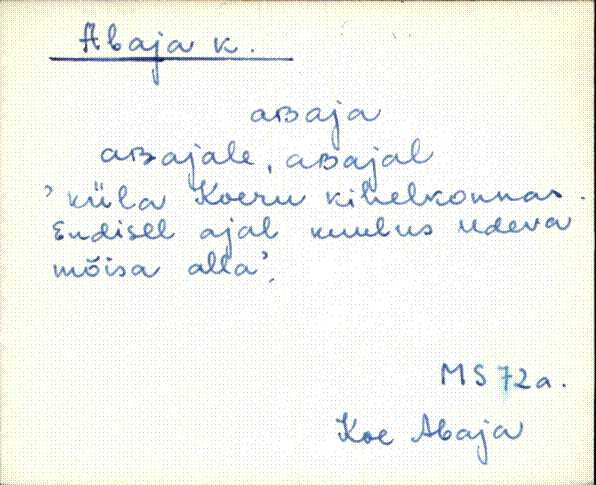 Abaja k.
aʙaja
aʙajale, aʙajal
'küla Koeru kihelkonnas.
Endisel ajal kuulus Udeva
mõisa alla'.
MS 72a.
Koe Abaja